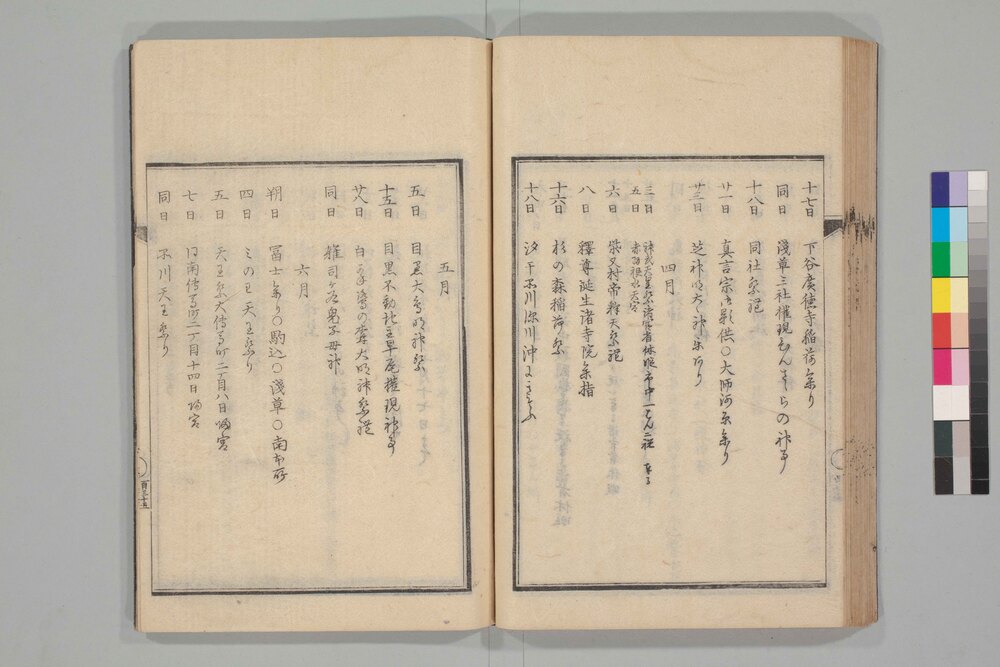 十七日 下谷廣徳寺稲荷参り
同日 浅草三社権現びんざさらの神事
十八日 同社祭礼
廿一日 真言宗御影供〇大師河原参り
廿三日 芝神明太々神楽アリ
四月
三日 神武天皇祭諸官省休暇市中一統
五日 赤羽根水天宮
六日 柴又村帝釈天祭礼
八日 釋尊誕生諸寺院参指
十六日 杉の森稲荷祭
十八日 汐干品川深川沖
五月
五日 目黒大鳥明神祭
十五日 目黒不動地主早尾権現神事
廿八日
同日 雑司ヶ谷鬼子母神
六月
朔日 冨士参り〇駒込〇浅草〇南本所
四日 天王祭り
五日 天王祭大傳馬町二丁目八日帰宮
七日 同南傳馬町二丁目十四日帰宮
同日 品川天王祭り
百三十五